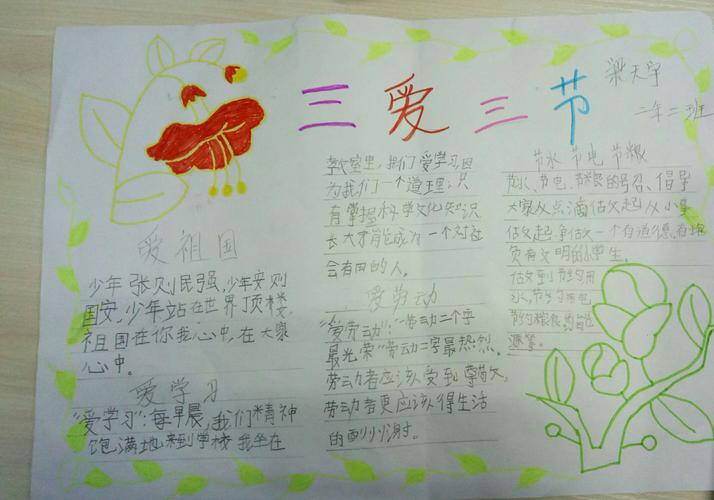 三爱三节
梁天宇
二年二班
爱祖国
少年强则民强,少年安则
国安,少年站在世界顶楼,
祖国在你我心中,在大家
心中。
爱学习
"爱学习":每早晨,我们精神
饱满地来到学校 我坐在
教室里,我们爱学习,因
为我们一个道理:只
有掌握科学文化知识
长大才能成为一个对社
会有用的人。
爱劳动
"爱劳动":"劳动二个字
最光荣"劳动二字最热烈。
劳动者应该受到尊敬
劳动者更应该得生活
的
节水 节电 节粮
节水、节电、节粮的号召、倡导
大家从点滴做起从小事
做起争做一个有道德、有
负有文明的小学生。
做到节约用
水,节约用电
节约粮食